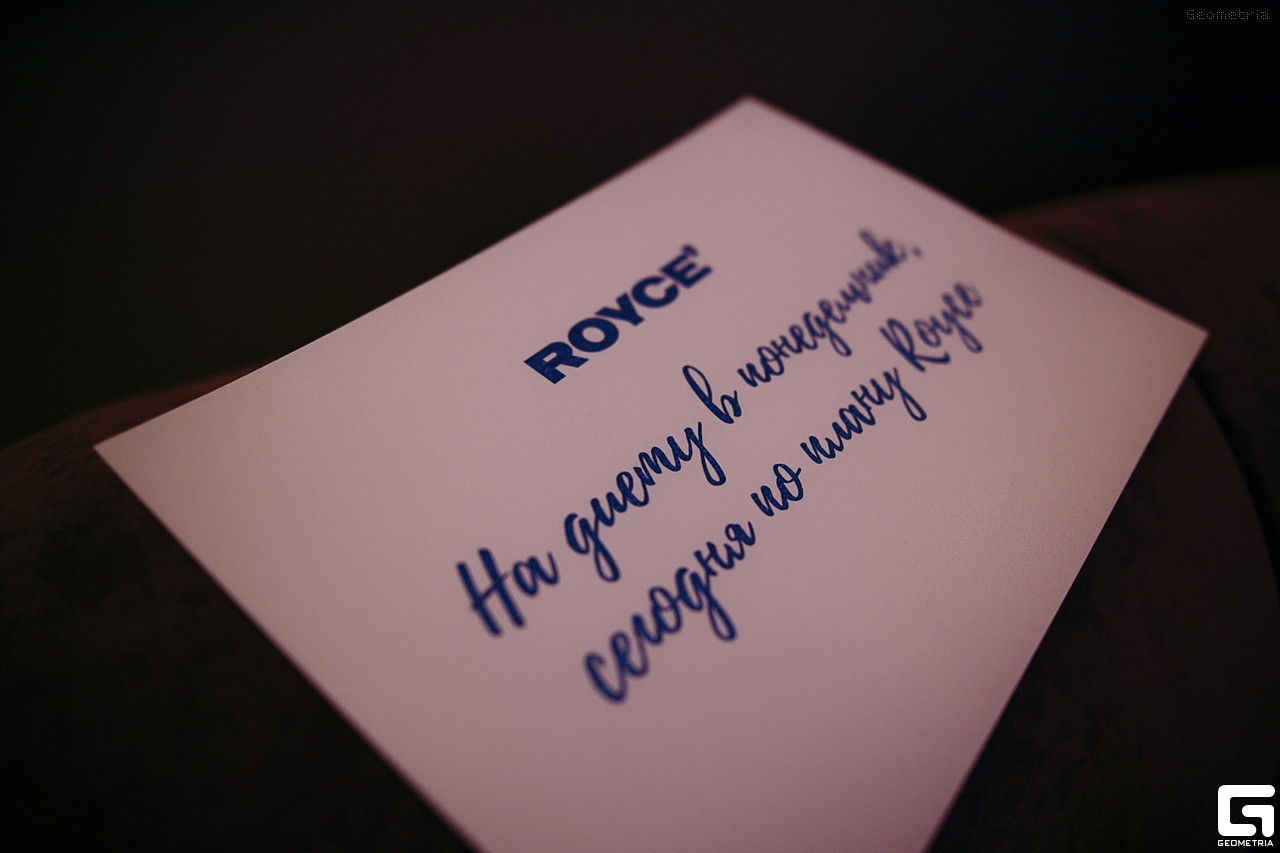 Geometria
ROYCE'
На диету в понедельник,
сегодня по плану Royce
GEOMETRIA